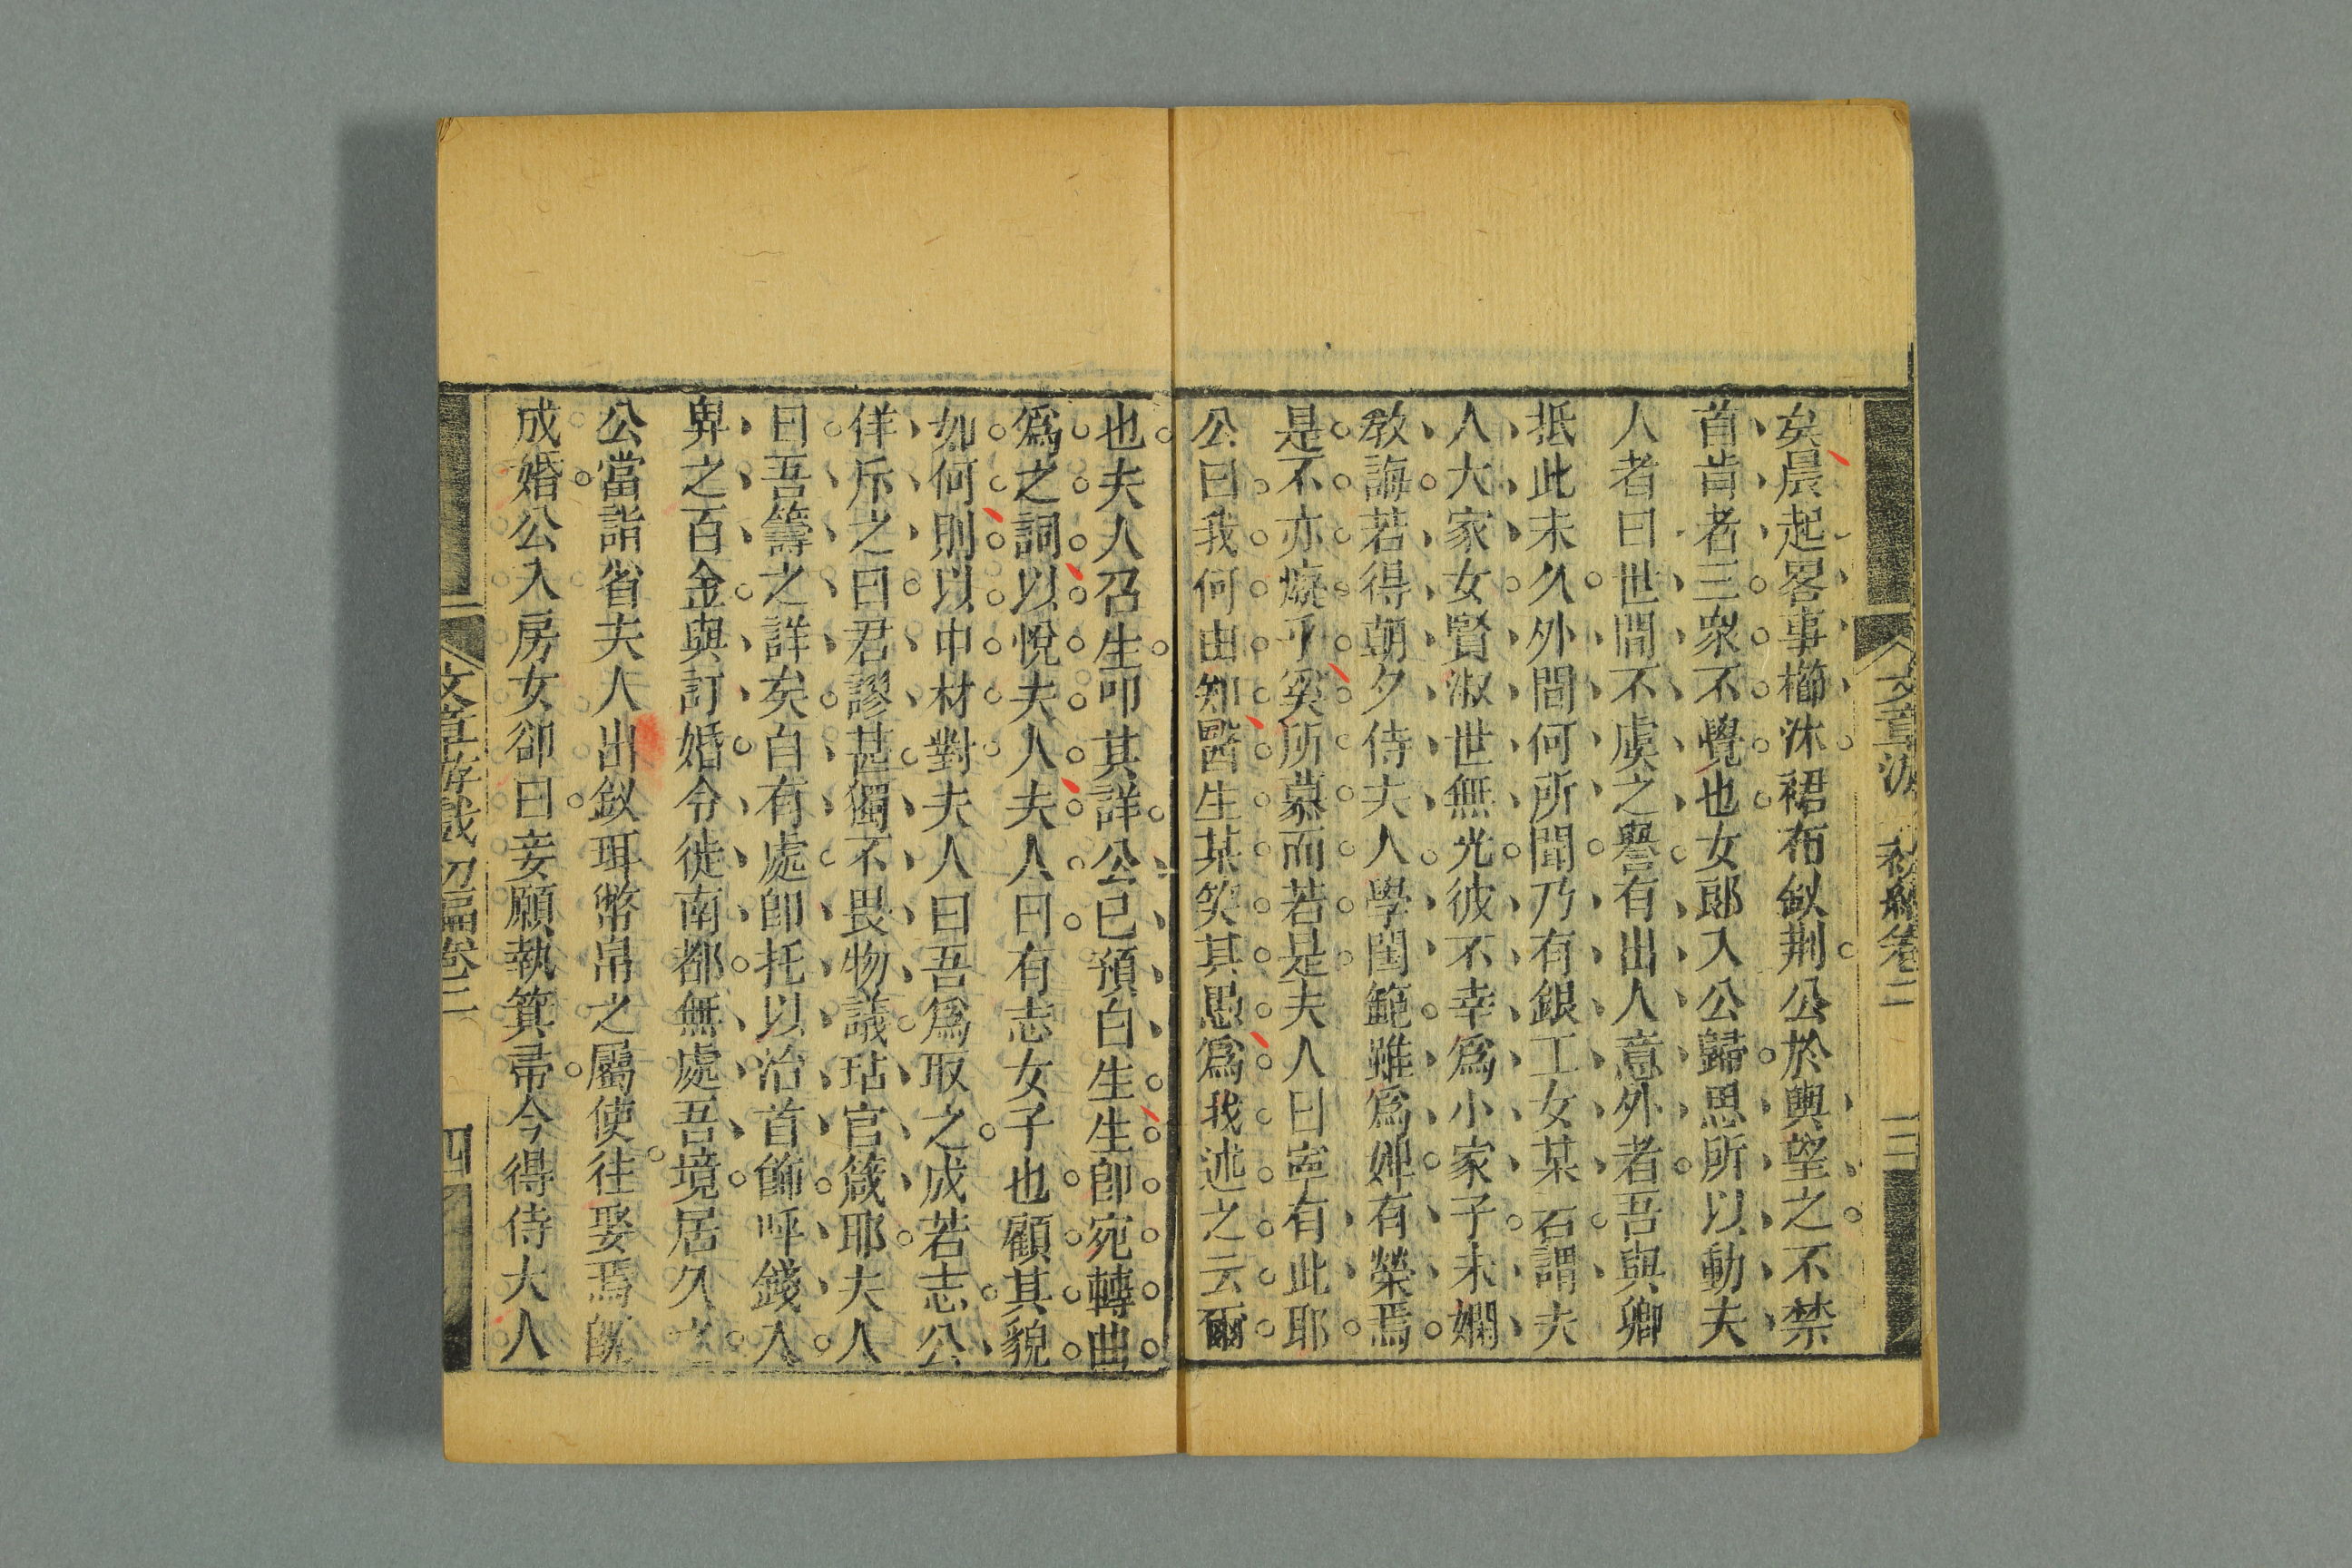 文章游 初編卷二 三
矣晨起畧事櫛沐裙布釵荆公於輿望之不禁
首肯者三衆不覺也女郎入公歸思所以動夫
人者曰世間不虞之譽有出人意外者吾與卿
抵此未久外間何所聞乃有銀工女某石謂夫
人大家女賢淑世無光彼不幸爲小家子未嫻
敎誨若得朝夕侍夫人學閨範雖爲婢有榮焉
是不亦癡乎奚所慕而若是夫人曰寧有此耶
公曰我何由知醫生某笑其愚爲我述之云爾
也夫人召生叩其詳公已預白生生卽宛轉曲
爲之詞以悅夫人夫人曰有志女子也顧其貌
如何則以中材對夫人曰吾爲取之成若志公
佯斥之曰君謬甚獨不畏物議玷官箴耶夫人
曰吾籌之詳矣自有處卽托以治首飾呼錢入
畀之百金與訂婚令徙南都無處吾境居久之
公當詣省夫人出釵珥幣帛之屬使往娶焉旣
成婚公入房女卻曰妾願執箕帚今得侍大人
文章游戲 初編卷二 四